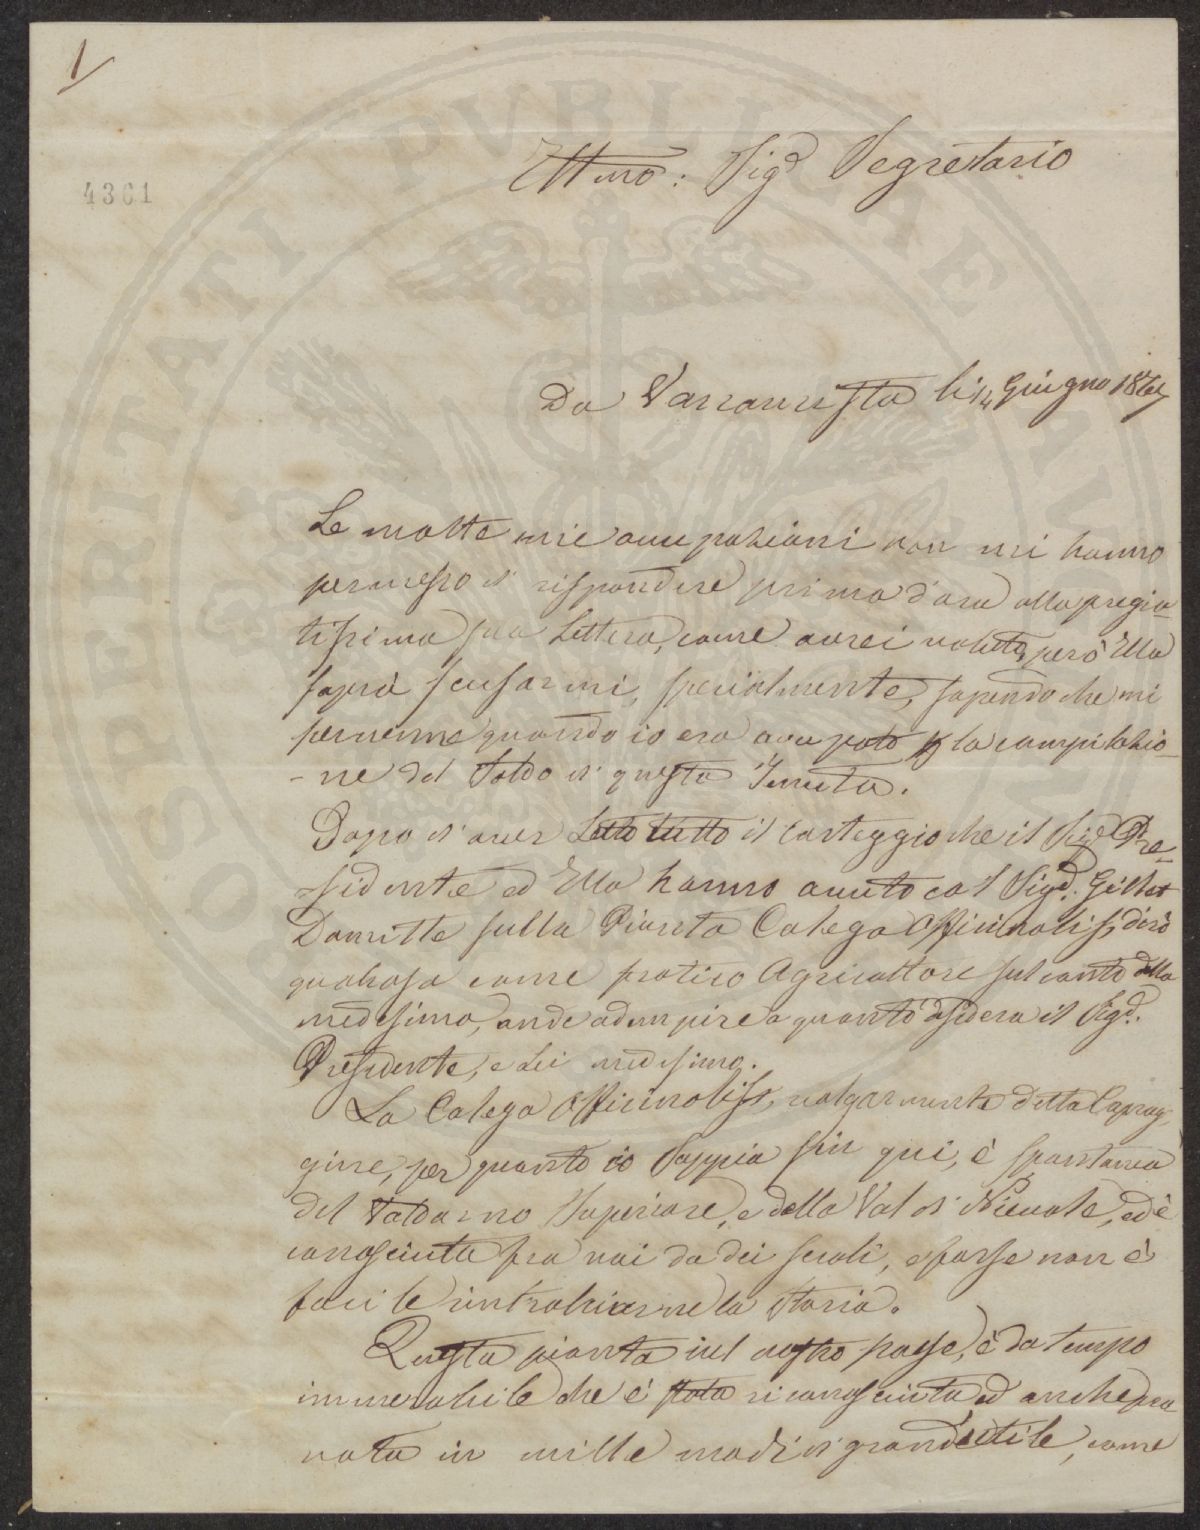 1
4361
Ettmo: Sig.r Segretario
Da Varramista li 14 Giugno 186
Le molte mie occupazioni non mi hanno
permesso di rispondere prima d'ora alla pregia-
tissima sua Lettera, come avrei voluto, però Ella
saprà scusarmi, specialmente, sapendo che mi
pervenne quando io era occupato p la compilazio-
-ne del Saldo di questa Tenuta.
Dopo di aver Letto tutto il carteggio che il Sig.r Pre-
-sidente ed Ella hanno avuto col Sig.r Gillet
Damitte sulla Pianta Galega Officinaliss, dirò
qualcosa come pratico Agricoltore sul conto della
medesima, onde adempire a quanto desidera il Sig.r
Presidente, e Lei medesimo.
La Galega Officinaliss, volgarmente detta Caprag-
gine, per quanto io Sappia fin qui, è spontanea
del Valdarno Superiore, e della Val di Nievole, ed è
conosciuta fra noi da dei secoli, e forse non è
facile rintracciarne la storia.
Questa pianta nel nostro paese, è da tempo
immemorabile che è stata riconosciuta ed anche pro
vata in mille modi di grand'utile, come
PROSPERITATI PVBLICAE AV